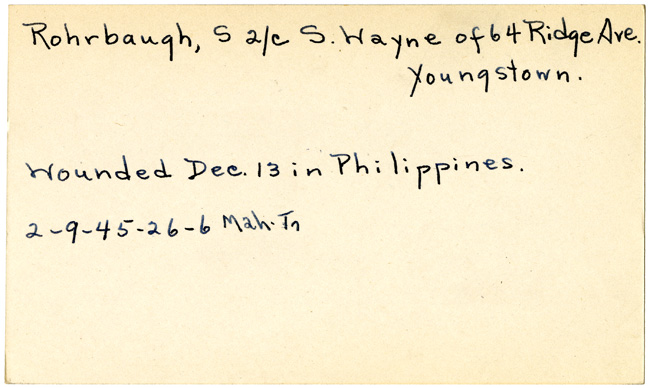 Rohrbaugh, S 2/c S. Wayne of 64 Ridge Ave.
Youngstown.
Wounded Dec. 13 in Philippines.
2-9-45-26-6 Mah. Tn